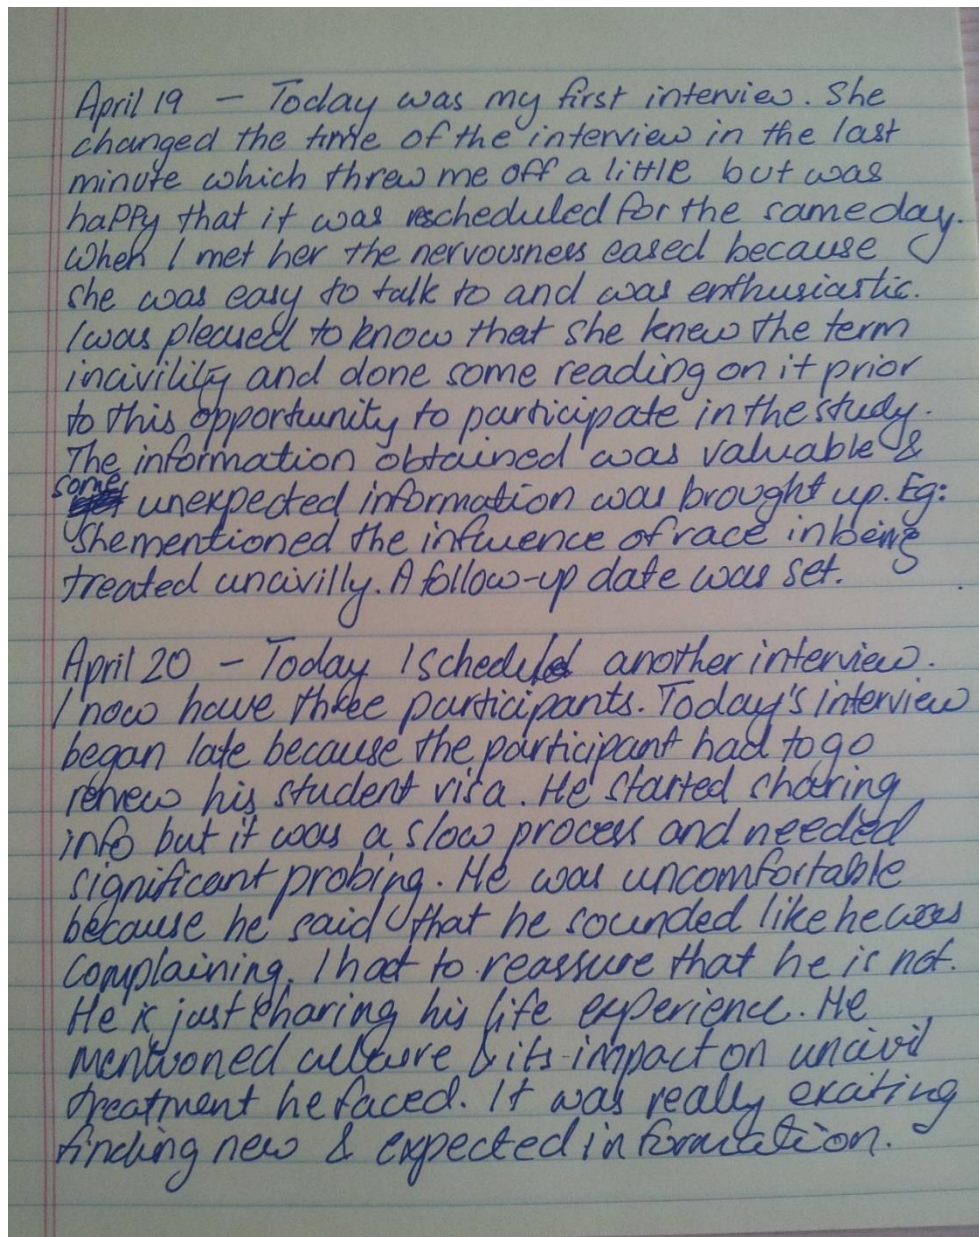 April 19 - Today was my first interview. She
changed the time of the interview in the last
minute which threw me off a little but was
happy that it was rescheduled for the same day.
When I met her the nervousness eased because
she was easy to talk to and was enthusiastic.
I was pleased to know that she knew the term
incivility and done some reading on it prior
to this opportunity to participate in the study.
The information obtained was valuable &
some unexpected information was brought up. Eg:
She mentioned the influence of race in being
treated uncivilly. A follow-up date was set.
April 20 - Today I scheduled another interview.
I now have three participants. Today's interview
began late because the participant had to go
renew his student visa. He started sharing
info but it was a slow process and needed
significant probing. He was uncomfortable
because he said that he sounded like he was
complaining. I had to reassure that he is not.
He is just sharing his life experience. He
mentioned culture & its impact on uncivil
treatment he faced. It was really exciting
finding new & expected information.